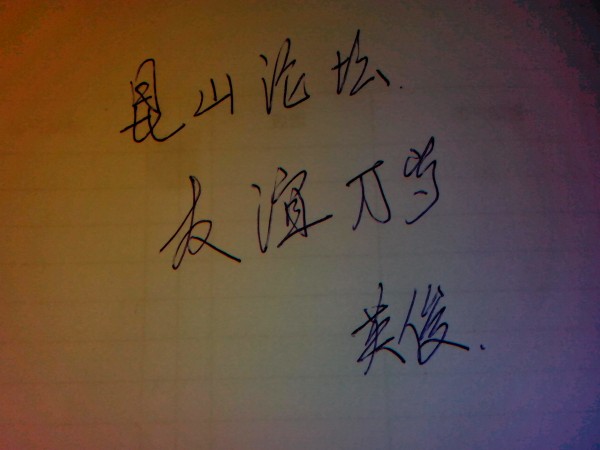 昆山论坛
友谊万岁
英俊